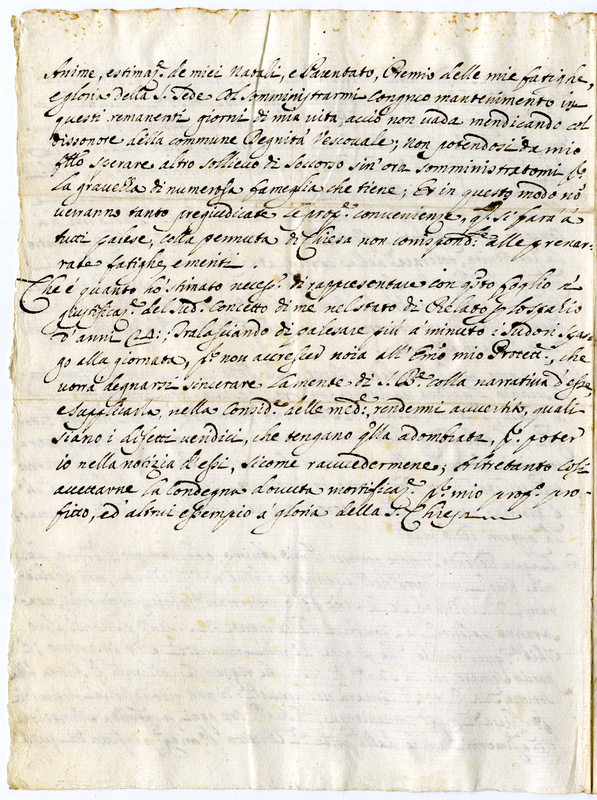 Anime, estimaz.e de miei Natali, e Parentato, Premio delle mie fatighe,
e gloria della S. Sede col somministrarmi congruo mantenimento in
questi remanenti giorni di mia vita, acciò non vada mendicando col
dissonore della commune Degnità Vescovale; non potendosi da mio
sperare altro sollievo di soccorso sin'ora somministratomi p.
la gravezza di numerosa fameglia che tiene; Et in questo modo nō
verranno tanto pregiudicate le conveniente, si farà à
tutti palese, colla permuta di Chiesa non corrispond.e alle prenar-
rate fatighe, e meriti.
Che è quanto hò stimato necess.o di rappresentare con q.sto foglio à
giustificaz.e del Sud.o Concetto di me nel stato di Prelato p lo spatio
d'anni 24:, Tralasciando di palesare più à minuto i sudori spar-
go alla giornata, p. non accrescer noia all' Em̄o mio Protett.e, che
vorrà degnarsi sincerare la mente di S. B.e colla narrativa d'essi,
e supplicarla, nella Consid.e delle med.e, rendermi avvertito, quali
siano i difetti vendici, che tengano q.lla adombrata, p. poter
io nella notizia d'essi, sicome ravvedermene; Altretanto così
accettarne la condegna dovuta mortificaz.e p. mio prof.o pro-
fitto, ed altrui essempio à gloria della S. Chiesa